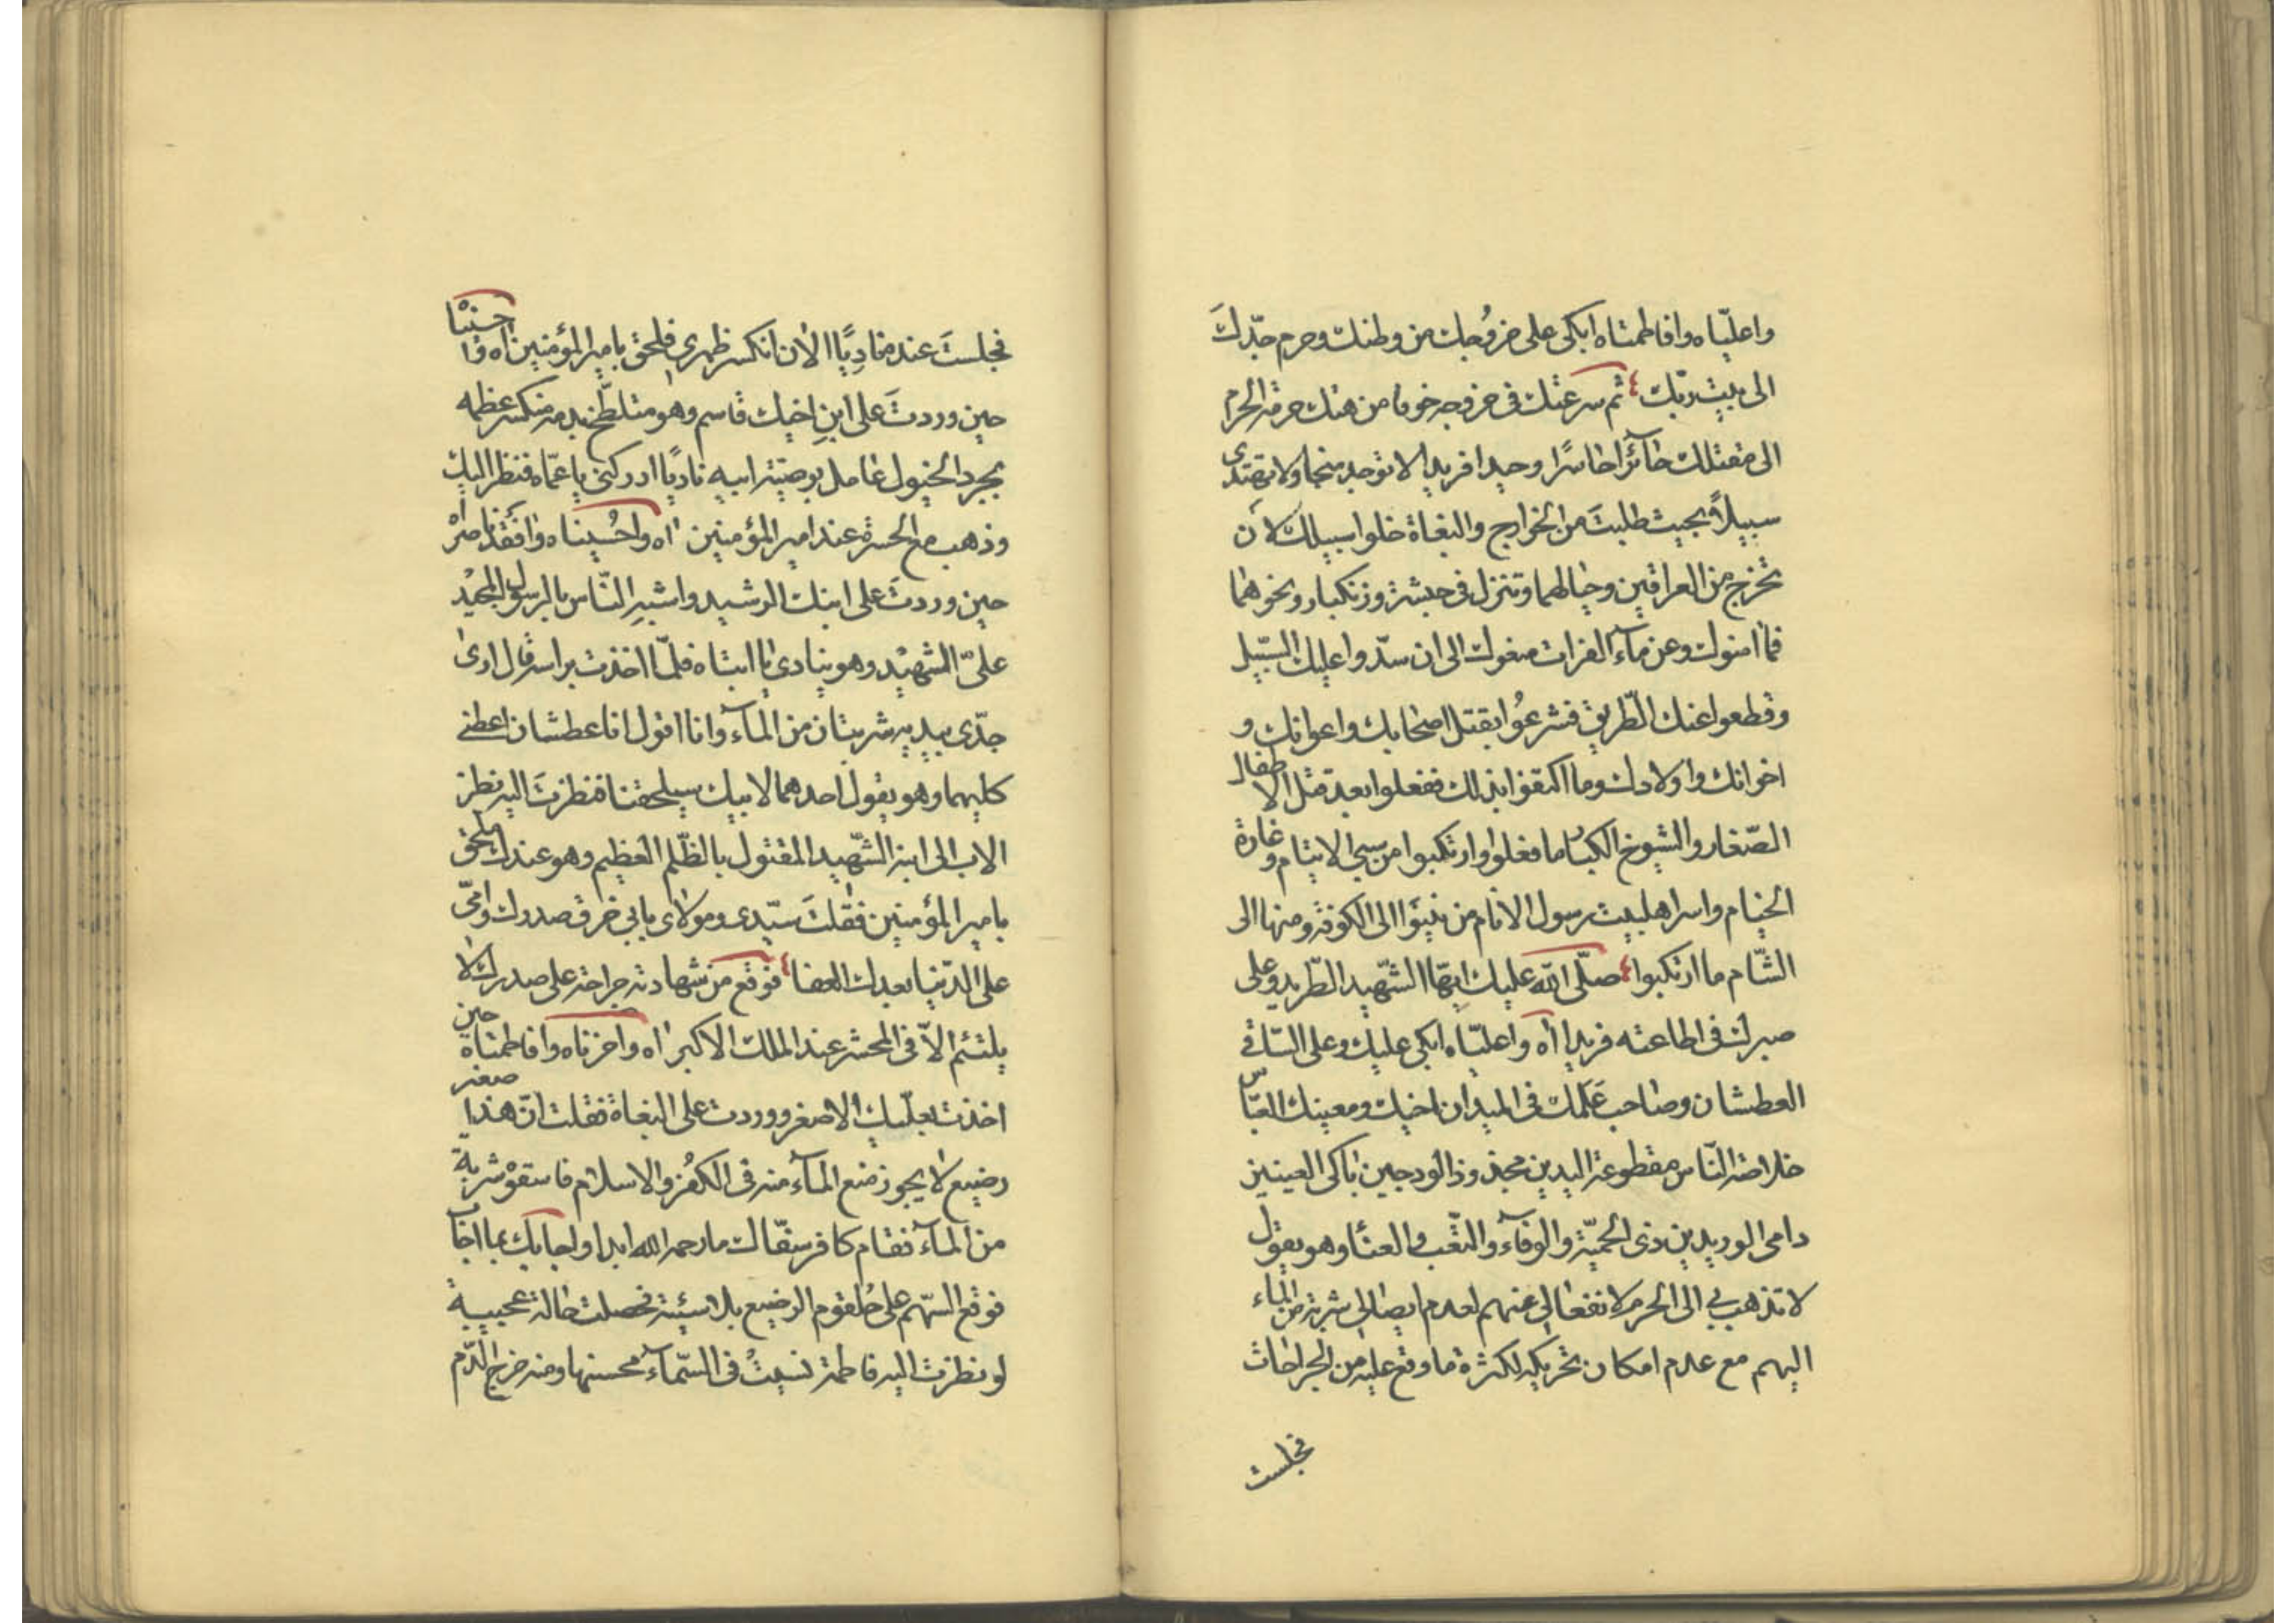 واعليّاه وافاطمتاه ابكى على خروُجك من وطنك وحرم جدّكَ
الى بيت ربّك ثم سرعتك فى خروجه خوفا من هتك حرمة الحرم
الى مقتلك حائرا خاسرًا وحيدا فريدا لا توجد منجا ولا تهتدى
سبيلاً بحيث طلبتَ من الخوارج والبغاة خلوا سبيلك لأن
تخرج من العراقين وجبالهما وتنزل فى حبشة وزنكبار ونحوهما
فما امنوك وعن ماء الفرات منعوك الى ان سدّوا عليك السّبيل
وقطعوا عنك الطّريق فشرعوُا بقتل اصحابك واعوانك و
اخوانك واولادك وما اكتفوا بذلك ففعلوا بعد قتل الاطفال
الصّغار والشيوخ الكبار ما فعلوا وارتكبوا من سبى الايتام وغارة
الخيام واسر اهلبيت رسول الانام من نينَوا الى الكوفة ومنها الى
الشّام ما ارتكبوا صلّى الله عليك ايّها الشّهيد الطّريد وعلى
صبرك فى اطاعته فريدا اه واعليّاه ابكى عليك وعلى السّاقى
العطشان وصاحب عَلَمك فى الميدان اخيك ومعينك العبّاس
خلاصة النّاس مقطوعة اليدين مجذوذ الودجين باكى العينين
دامى الوريدين ذى الحميّة والوفاء والتّعب والعنا وهو يقول
لا تذهب بى الى الحرم لانفعالى عنهم لعدم ايصالى شربة من الماء
اليهم مع عدم امكان تحريكه لكثرة ما وقع عليه من الجراحات
فجلست
فجلستَ عنده مناديًا الان انكسر ظهرى فلحق بامير المؤمنين اه واحسينا
حين وردتَ على ابنِ اخيك قاسم وهو متلطّخ بدمه منكسر عظمه
بجرد الخيول عامل بوصيّة ابيه ناديًا ادركنى يا عمّاه فنظر اليك
وذهب مع الحسرة عند امير المؤمنين اه واحُسيناه وافَقد ناصراه
حين وردتَ على ابنك الرشيد واشبهِ النّاس بالرسول المجيد
علىّ الشهيد وهو ينادى يا ابتاه فلمّا اخذت براسه قال ارى
جدّى بيديه شربتان من الماء وانا اقول انا عطشان اعطنى
كليهما وهو يقول احدهما لابيك سيلحقنا فنظرتَ اليه نظر
الاب الى ابنه الشّهيد المقتول بالظّلم العظيم وهو عندك ملحق
بامير المؤمنين فقلتَ سيّدى ومولاى بابى خرق صدرك وامّى
على الدّنيا بعدك العفا فوقع من شهادته جراحة على صدرك لا
يلتئم الاّ فى المحشر عند الملك الاكبر اه واحزناه وافاطمتاه حين
اخذت بعلّيك الاصغر ووردت على البغاة فقلت انّ هذا صغير
رضيع لا يجوز منع الماء منه فى الكفُر والاسلام فاسقوْ شربة
من الماء فقام كافر سفّاك ما رحمه الله ابدا واجابك بما اجابَ
فوقع السّهم على حُلقوم الرضيع بلا سيّئة فحصلت حالة عجيبة
لو نظرت اليه فاطمة نسيتُ فى السّماء محسنها ومنه خرج الدّم